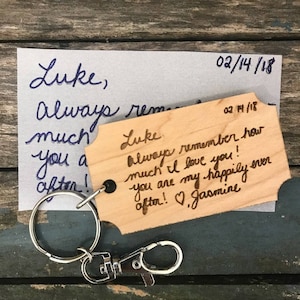 02/14/18
Luke,
always reme
much
you a
after!
02/14/18
Luke,
always remember how
much i love you!
you are my happily ever
after! ♡, Jasmine